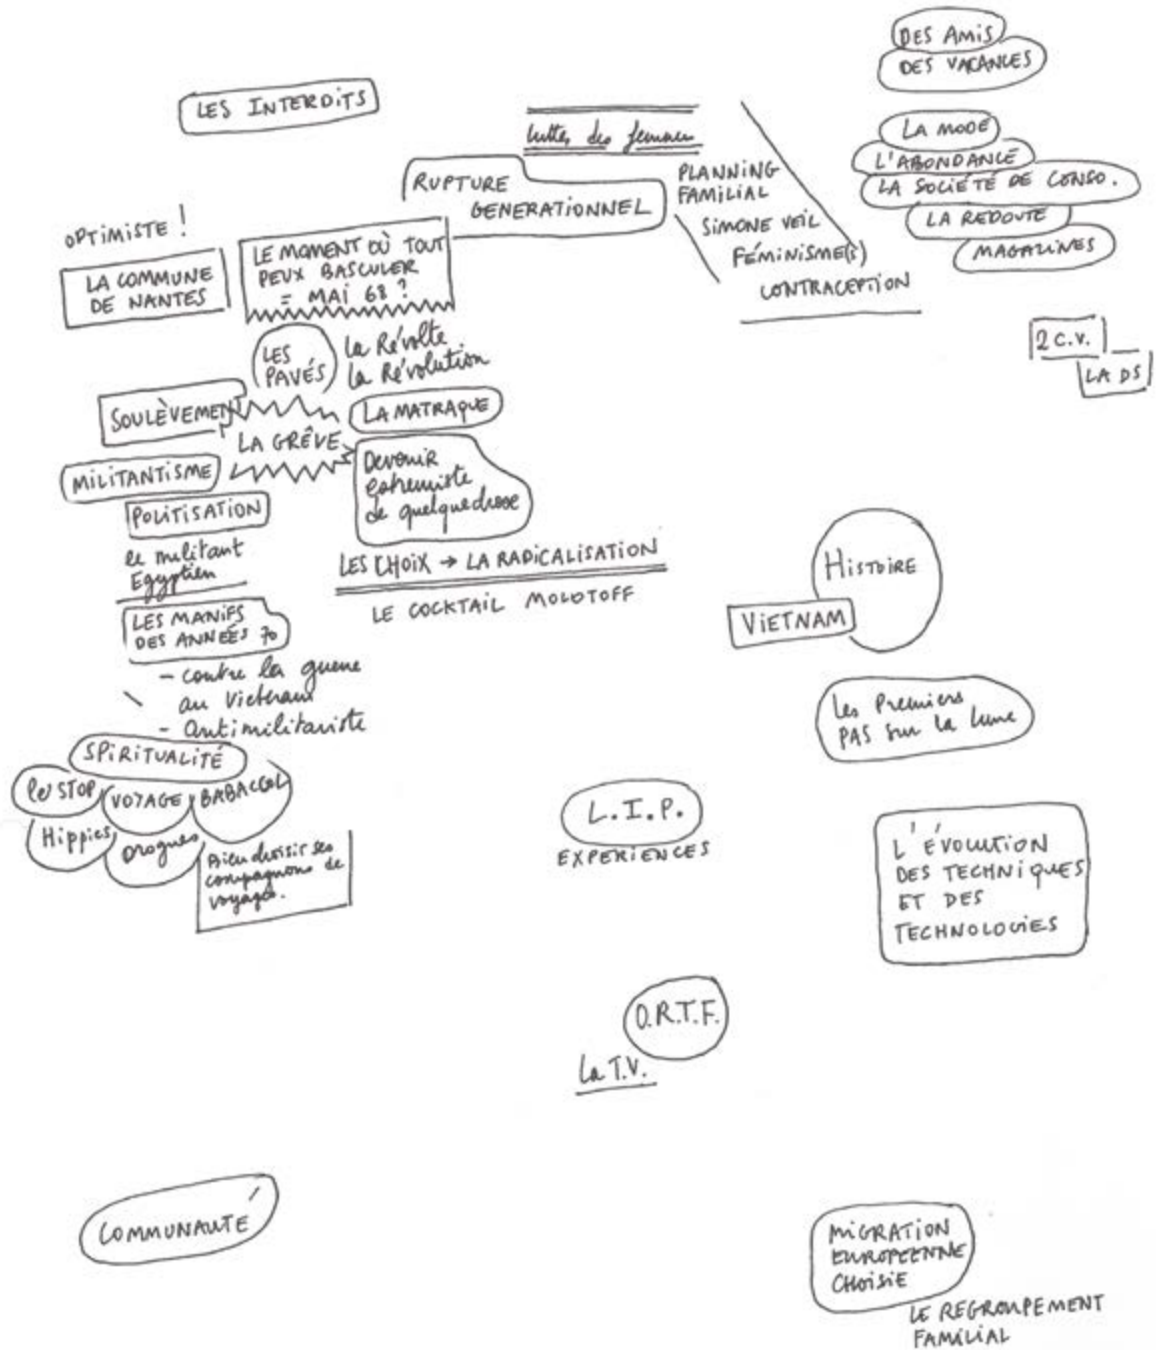 DES AMIS
DES VACANCES
LES INTERDITS
LA MODE
L'ABONDANCE
LA SOCIÉTÉ DE CONSO.
LA REDOUTE
MAGAZINES
luttes des femmes
PLANNING
FAMILIAL
SIMONE VEIL
FÉMINISME(S)
CONTRACEPTION
RUPTURE
GENERATIONNEL
OPTIMISTE !
LA COMMUNE
DE NANTES
LE MOMENT OÙ TOUT
PEUX BASCULER
= MAI 68 ?
2 C.V.
LA DS
LES
PAVÉS
la Révolte
la Révolution
SOULÈVEMENT
LA GRÊVE
LA MATRAQUE
MILITANTISME
POLITISATION
Devenir
extremiste
de quelquechose
le militant
Egyptien
LES CHOIX → LA RADICALISATION
LE COCKTAIL MOLOTOFF
LES MANIFS
DES ANNÉES 70
- contre la guerre
au Vietnam
- Antimilitariste
HISTOIRE
VIETNAM
Les Premiers
PAS sur la lune
SPIRITUALITÉ
le STOP
VOYAGE
BABACOOL
Hippies
Drogues
Bien choisir ses
compagnons de
voyages.
L.I.P.
EXPERIENCES
L'ÉVOLUTION
DES TECHNIQUES
ET DES
TECHNOLOGIES
O.R.T.F.
La T.V.
COMMUNAUTÉ
MIGRATION
EUROPEENNE
CHOISIE
LE REGROUPEMENT
FAMILIAL